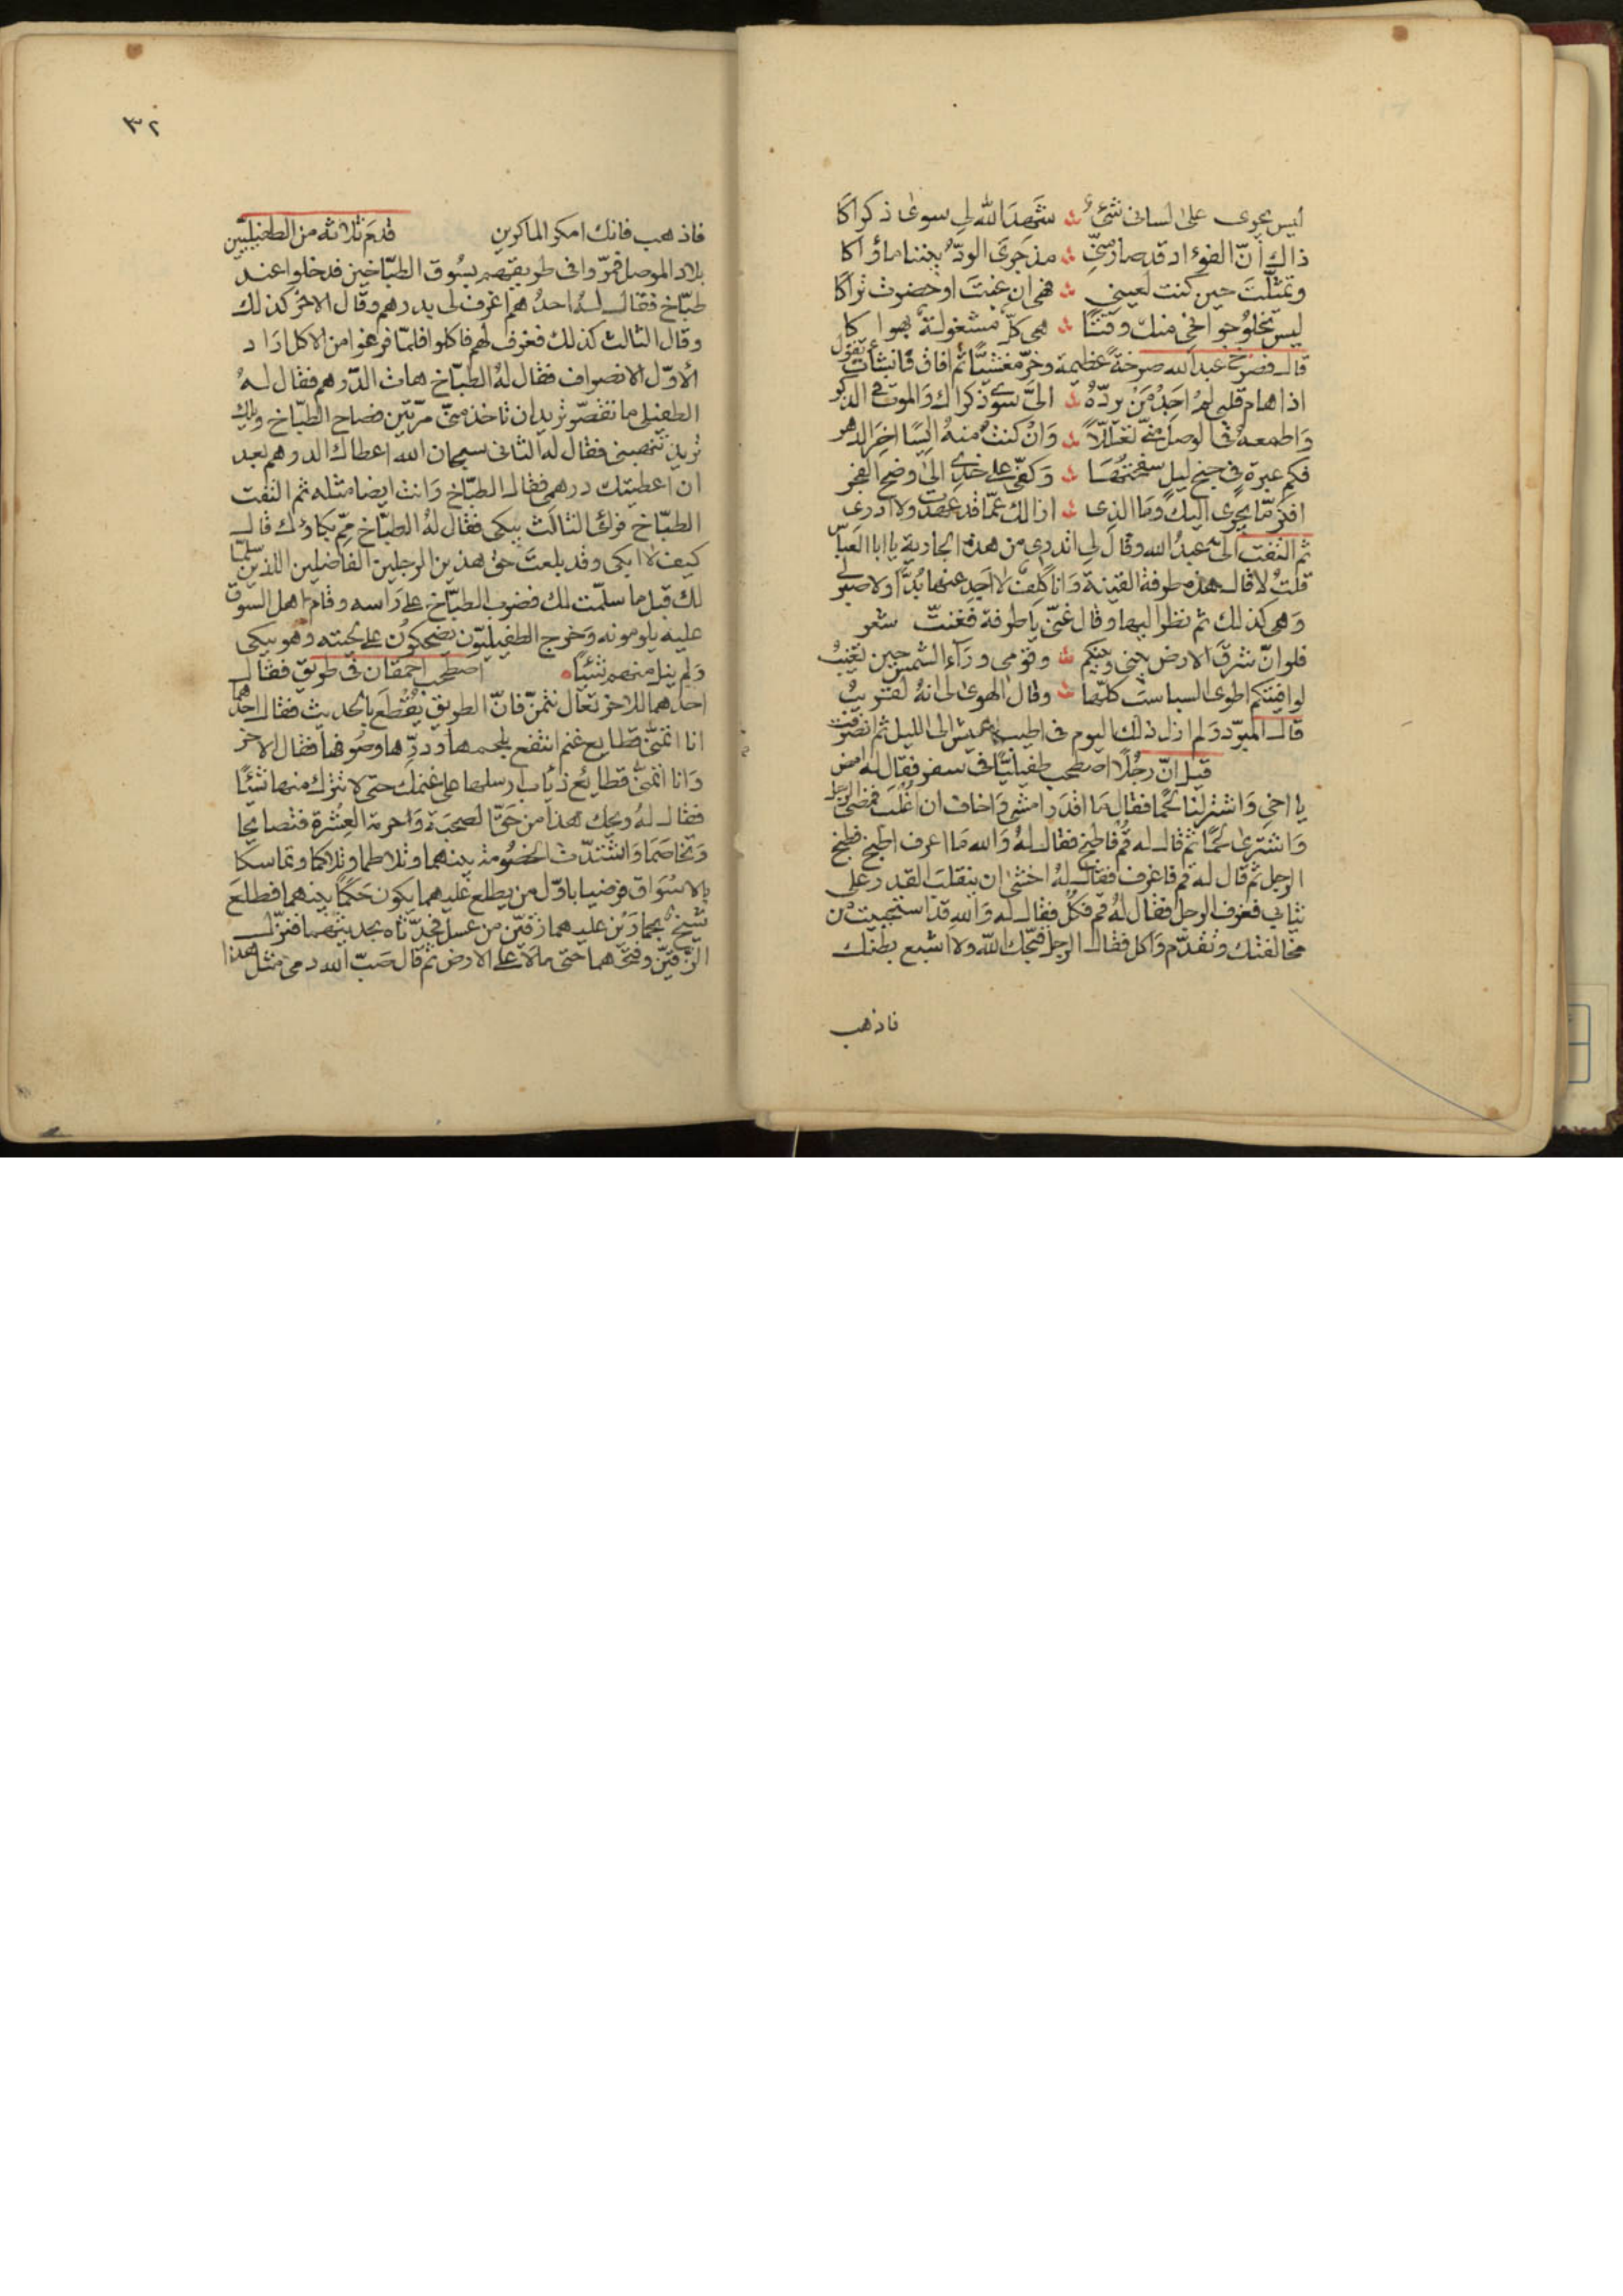 ليس يجرى على لسانى شئ ۞ شهد الله لى سوى ذكراكا
ذاك أنّ الفؤاد قد صار منّى ۞ مذ جرى الودّ بيننا مأواكا
وتمثّلت حين كنت لعينى ۞ فهى ان غبت او حضرت تراكا
ليس تخلو جوانحى منك وقتًا ۞ هى كلّ مشغولة بهواكا
قال فصرخ عبد الله صرخة عظيمة وخرّ مغشيًّا ثم افاق فانشأت تقول
اذا هام قلبى لم اجد من يردّه ۞ الىّ سوى ذكراك والموت فى الذكر
واطمعه فى الوصل منّى تعلّلًا ۞ وان كنت منه آيسًا اخر الدهر
فكم عبرة فى جنح ليل سفحتها ۞ وكفّى على خدى الى وضح الفجر
افكر ممّا يجرى اليك وما الذى ۞ ازالك عمّا قد عهدت ولا ادرى
ثم التفت الىّ عبد الله وقال لى اتدرى من هذه الجارية يا ابا العباس
قلت لا قال هذه طرفة القينة وانا كلف لا اجد عنها بدًّا ولا صبر لى
وهى كذلك ثم نظر اليها وقال غنّى يا طرفة فغنّت شعر
فلو انّ شرق الارض بينى وبينكم ۞ وقومى ورآء الشمس حين تغيب
لوافيتكم اطوى السباسب كلّها ۞ وقال الهوى لى انه لقريب
قال المبرّد ولم ازل ذلك اليوم فى اطيب عيش الى الليل ثم انصرفت
قيل انّ رجلًا اصطحب طفيليًّا فى سفر فقال له امض
يا اخى واشتر لنا لحمًا فقال ما اقدر امشى واخاف ان اغلب فمضى الرجل
واشترى لحمًا ثم قال له قم فاطبخ فقال له والله ما اعرف اطبخ فطبخ
الرجل ثم قال له قم فاغرف فقال له اخشى ان ينقلب القدر على
ثيابى فغرف الرجل فقال له قم فكل فقال له والله قد استحييت من
مخالفتك وتقدّم واكل فقال الرجل قبّحك الله ولا اشبع بطنك
فاذهب
٣٢
فاذهب فانك امكر الماكرين قدم ثلاثه من الطفيليين
بلاد الموصل فمرّوا فى طريقهم بسوق الطبّاخين فدخلوا عند
طبّاخ فقال له احدهم اغرف لى بدرهم وقال الاخر كذلك
وقال الثالث كذلك فغرف لهم فاكلوا فلمّا فرغوا من الاكل اراد
الأوّل الانصراف فقال له الطبّاخ هات الدّرهم فقال له
الطفيلى ما تقصّر تريد ان تاخذ منّى مرّتين فصاح الطبّاخ ويلك
تريد تنصبنى فقال له الثانى سبحان الله اعطاك الدرهم بعد
ان اعطيتك درهمى فقال الطبّاخ وانت ايضا مثله ثم التفت
الطبّاخ فرأى الثالث يبكى فقال له الطبّاخ ممّ بكاؤك قال
كيف لا ابكى وقد بلعت حق هذين الرجلين الفاضلين اللذين سلّما
لك قبل ما سلّمت لك فضرب الطبّاخ على راسه وقام اهل السوق
عليه يلومونه وخرج الطفيليّون يضحكون على لحيته وهو يبكى
ولم ينل منهم شيئًا اصطحب احمقان فى طريق فقال
احدهما للاخر تعال نتمنّ فانّ الطريق يقطع بالحديث فقال احدهما
انا اتمنّى قطايع غنم انتفع بلحمها ودرّها وصوفها فقال الاخر
وانا اتمنّى قطائع ذياب ارسلها على غنمك حتى لا تترك منها شيئًا
فقال له ويحك هذا من حقّ الصحبة واحرمة العشرة فتصايحا
وتخاصما واشتدّت الخصومة بينهما وتلاطما وتلاكما وتماسكا
بالاسواق فرضيا باوّل من يطلع عليهما يكون حكمًا بينهما فطلع
شيخ بحمارين عليهما زقّين من عسل فحدّثاه بحديثهما فنزّل
الزقّين وفتحهما حتى سالا على الارض ثم قال صبّ الله دمى مثل هذا